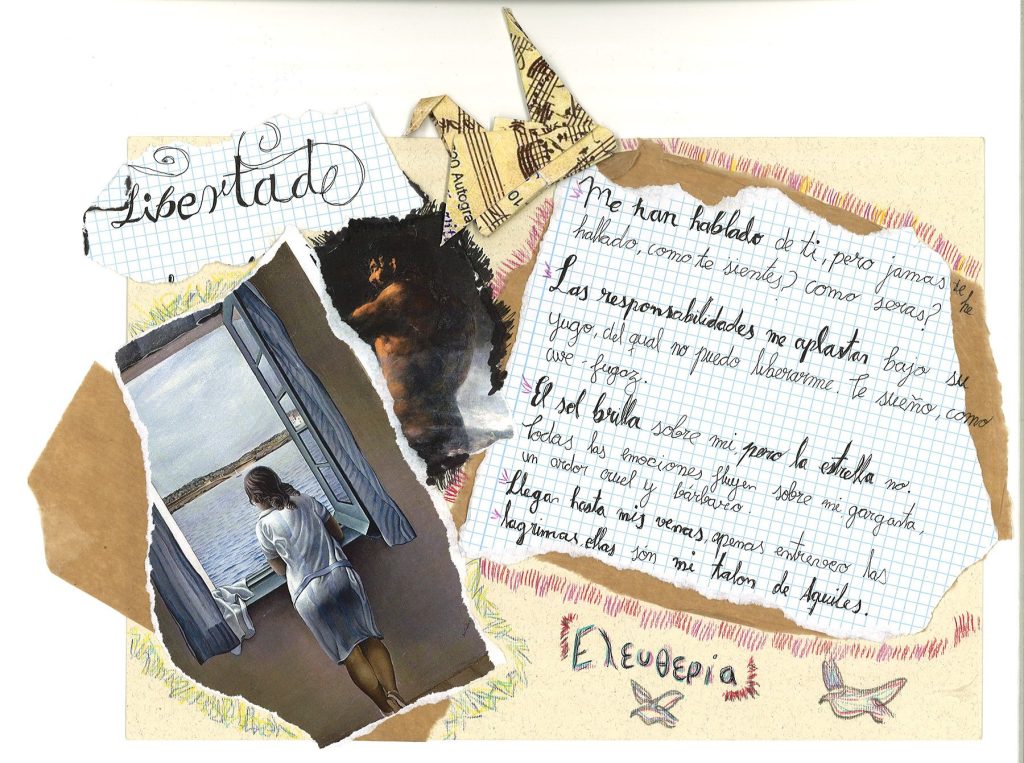 Libertad
on Autogra
Me han hablado de ti, pero jamas te he
hallado, como te sientes? como seras?
Las responsabilidades me aplastan bajo su
yugo, del qual no puedo liberarme. Te sueño, como
ave-fugaz.
El sol brilla sobre mi, pero la estrella no.
Todas las emociones fluyen sobre mi garganta,
un ardor cruel y bárbaro.
Llegan hasta mis venas, apenas entreveo las
lagrimas, ellas son mi talon de Aquiles.
Ελευθερία